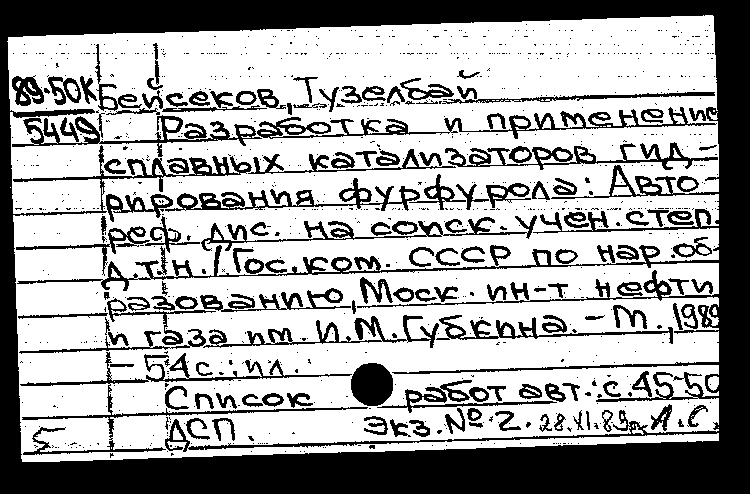 89-50К Бейсеков, Тузелбай
5449 Разработка и применение
сплавных катализаторов гид-
рирования фурфурола: Авто-
реф. дис. на соиск. учен. степ.
д.т.н. / Гос. ком. СССР по нар. об-
разованию, Моск. ин-т нефти
и газа им. И.М. Губкина. - М., 1989
- 54 с.: ил.
Список работ авт.: с. 45-50
5 ДСП. Экз. № 2. 28.XI.89г. А.С.